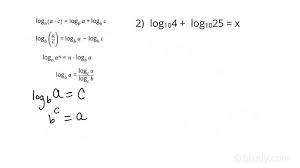 log_b(a · c) = log_b a + log_b c
log_b(a/c) = log_b a − log_b c
log_b aⁿ = n · log_b a
log_b a = log_c a / log_c b
log_b a = c
b^c = a
2) log₁₀4 + log₁₀25 = x
©Study.com